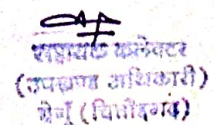 सहायक कलेक्टर
(उपखण्ड अधिकारी)
बेगूँ (चित्तौड़गढ़)